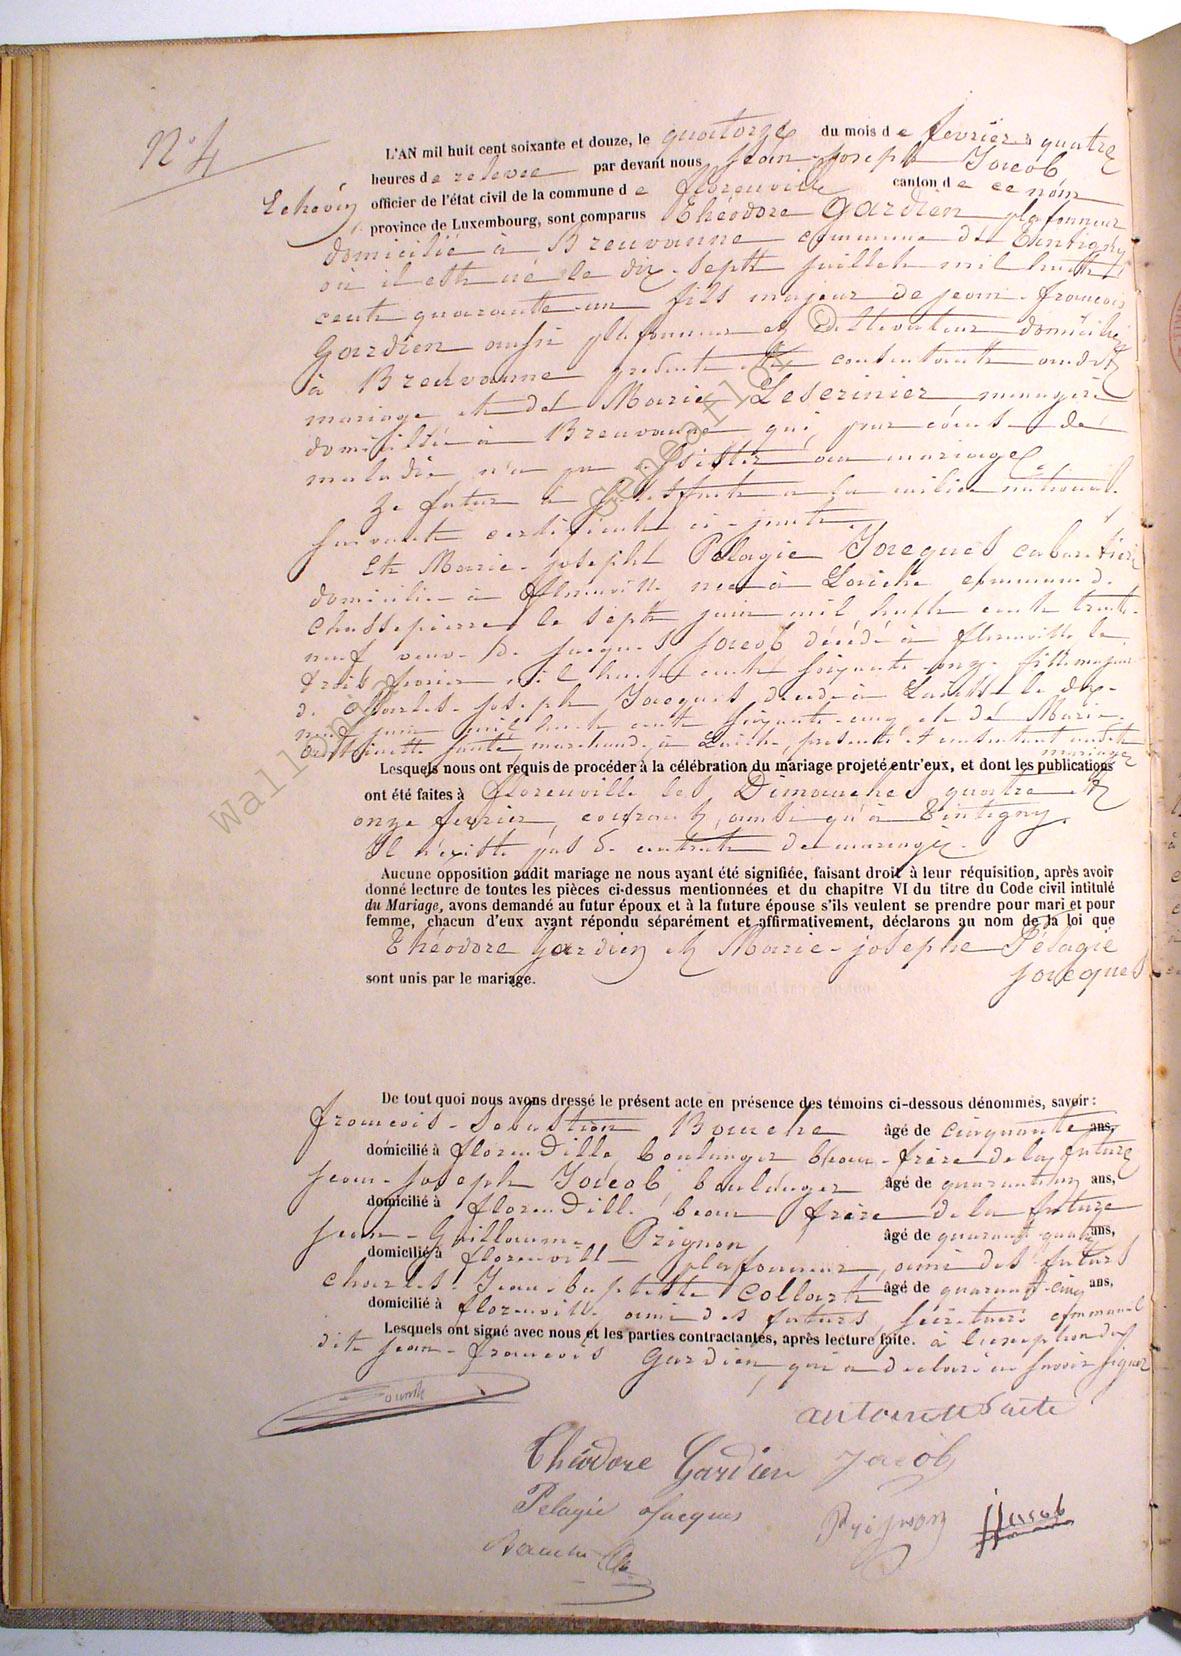 N° 4
L'AN mil huit cent soixante et douze, le quatorze du mois de fevrier à quatre
heures de relevée par devant nous Jean-Joseph Jacob
Echevin officier de l'état civil de la commune de florenville canton de ce nom
province de Luxembourg, sont comparus Théodore Gardien plafonneur
domicilié à Breuvanne commune de Tintigny
où il est né le dix-sept juillet mil huit
cent quarante-un fils majeur de jean-francois
Gardien aussi plafonneur et cultivateur domicilié
à Breuvanne présent et consentant audit
mariage et de Marie Leserinier menagère
domiciliée à Breuvanne qui pour cause de
maladie n'a pu assister au mariage
Le futur a satisfait à la milice national
suivant certificat ci-joint
Et Marie-joseph Pelagie Jacques cabaretière
domiciliée à florenville née à Laiche commune de
Chassepierre le sept juin mil huit cent trente-
neuf veuve de jacques jacob décédé à florenville le
trois fevrier mil huit cent soixante-onze fille majeure
de Charles-joseph Jacques décédé à Laiche le dix-
neuf juin mil huit cent soixante-cinq et de Marie-
marchande à Laiche, présente et consentant audit
mariage
Lesquels nous ont requis de procéder à la célébration du mariage projeté entr'eux, et dont les publications
ont été faites à florenville les Dimanches quatre et
onze fevrier courant, ainsi qu'à Tintigny.
Il n'existe pas de contrat de mariage.
Aucune opposition audit mariage ne nous ayant été signifiée, faisant droit à leur réquisition, après avoir
donné lecture de toutes les pièces ci-dessus mentionnées et du chapitre VI du titre du Code civil intitulé
du Mariage, avons demandé au futur époux et à la future épouse s'ils veulent se prendre pour mari et pour
femme, chacun d'eux ayant répondu séparément et affirmativement, déclarons au nom de la loi que
Théodore Gardien et Marie-josephe Pélagie
jacques
sont unis par le mariage.
De tout quoi nous avons dressé le présent acte en présence des témoins ci-dessous dénommés, savoir:
francois-Sebastien Bouche âgé de cinquante ans,
domicilié à florenville boulanger beau-frère de la future
jean-Joseph Jacob, boulanger âgé de ans,
domicilié à florenville beau frère de la future
jean-Guillaume Prignon âgé de quarante quatre ans,
domicilié à florenville plafonneur, ami des futurs
Charles-Jean-baptiste Collart âgé de quarante-cinq ans,
domicilié à florenville ami des futurs, secrétaire communal
Lesquels ont signé avec nous et les parties contractantes, après lecture faite. à l'exception du
dit jean-francois Gardien, qui a declaré ne savoir signer
Théodore Gardien Jacob
Pelagie Jacques Prignon JJacob
wallonia © Geneaflor